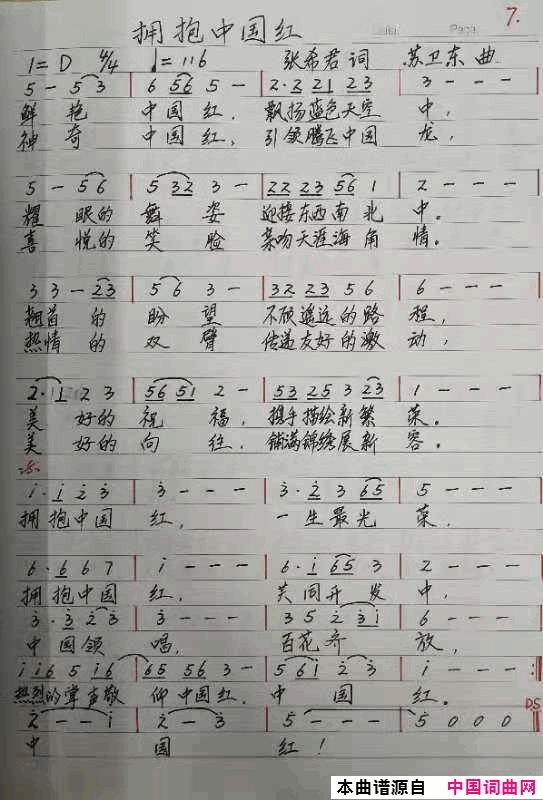 7.
拥抱中国红
1=D 4/4 ♩=116 张希君词 苏卫东曲
5 - 5 3 | 6 56 5 - | 2·2 21 23 | 3 - - - |
鲜艳 中国红, 飘扬蓝色天空中,
神奇 中国红, 引领腾飞中国龙,
5 - 5 6 | 5 32 3 - | 22 23 56 1 | 2 - - - |
耀眼的舞姿 迎接东西南北中。
喜悦的笑脸 亲吻天涯海角情。
3 3 - 23 | 5 6 3 - | 32 23 5 6 | 6 - - - |
翘首的盼望 不顾遥远的路程,
热情的双臂 传递友好的激动,
2·1 2 3 | 56 51 2 - | 53 25 3 23 | 1 - - - |
美好的祝福, 携手描绘新繁荣。
美好的向往, 铺满锦绣展新容。
:S:
i·i 2 3 | 3 - - - | 3·2 3 65 | 5 - - - |
拥抱中国红, 一生最光荣,
6·6 6 7 | i - - - | 6·i 65 3 | 2 - - - |
拥抱中国红, 共同开发中,
3·3 2 3 | 3 - - - | 3 5 2 31 | 6 - - - |
中国领唱, 百花齐放,
i i6 5 i6 | 65 56 3 - | 5 61 2 3 | i - - - :‖
热烈的掌声敬仰中国红, 中国红。
D.S
2 - - i | 2 - - 3 | 5 - - - | 5 0 0 0 ‖
中国红!
本曲谱源自 中国词曲网